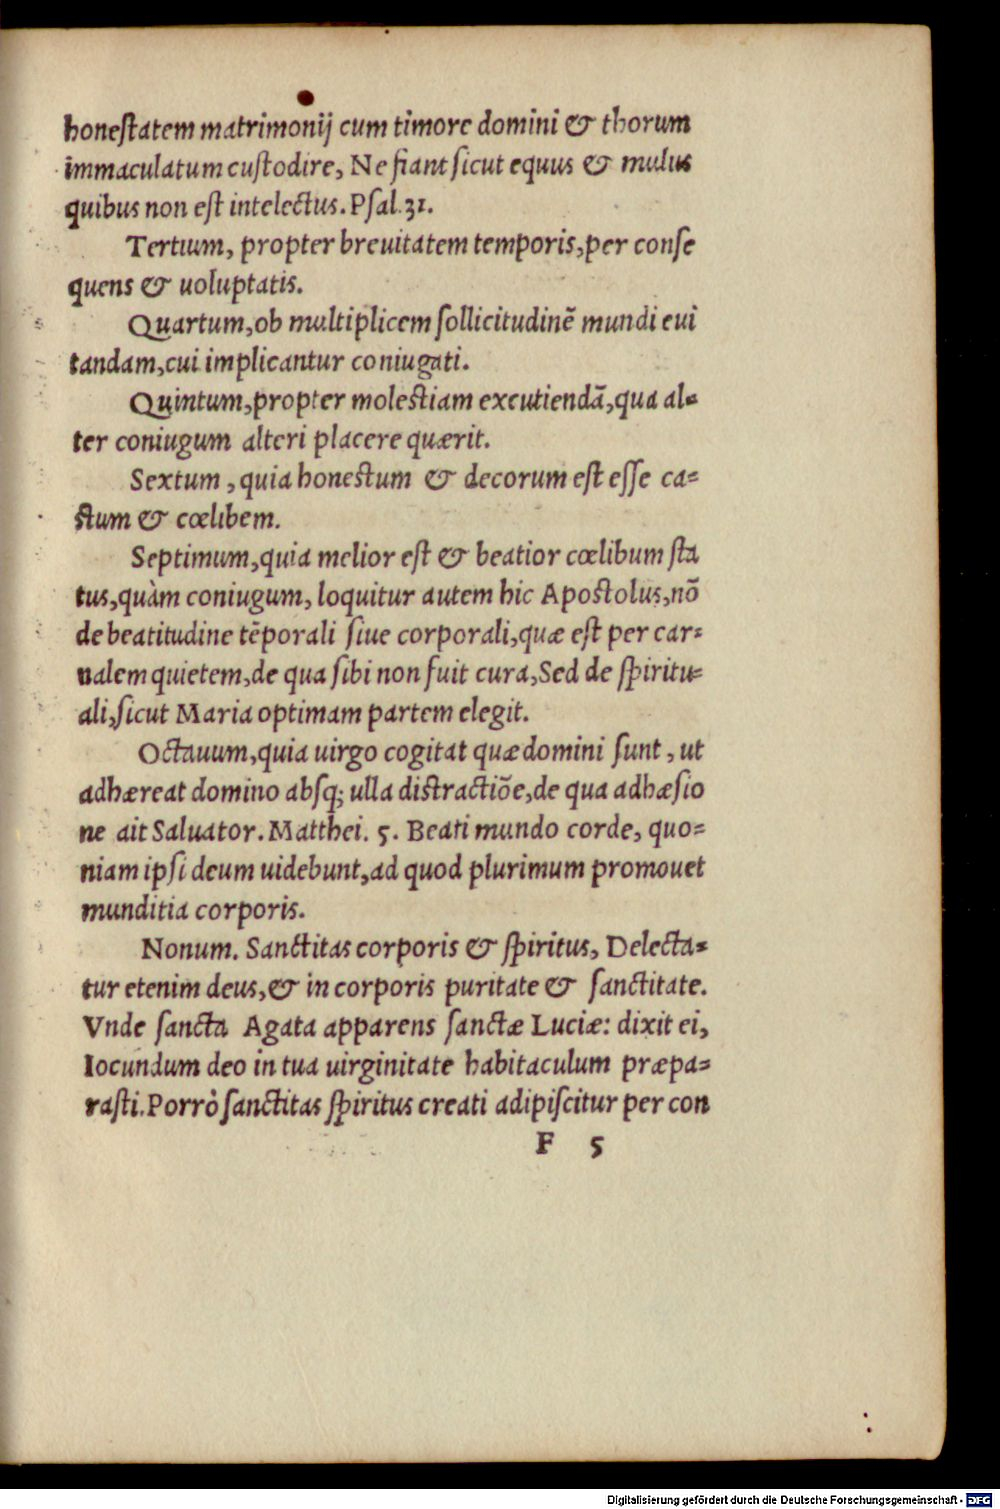 honeſtatem matrimonij cum timore domini & thorum
immaculatum cuſtodire, Ne fiant ſicut equus & mulus
quibus non eſt intelectus. Pſal. 31.
Tertium, propter breuitatem temporis, per conſe
quens & uoluptatis.
Quartum, ob multiplicem ſollicitudinē mundi eui
tandam, cui implicantur coniugati.
Quintum, propter moleſtiam excutiendā, qua al-
ter coniugum alteri placere quærit.
Sextum, quia honeſtum & decorum eſt eſſe ca-
ſtum & cœlibem.
Septimum, quia melior eſt & beatior cœlibum ſta
tus, quàm coniugum, loquitur autem hic Apoſtolus, nō
de beatitudine tēporali ſiue corporali, quæ eſt per car-
nalem quietem, de qua ſibi non fuit cura, Sed de ſpiritu-
ali, ſicut Maria optimam partem elegit.
Octauum, quia uirgo cogitat quæ domini ſunt, ut
adhæreat domino abſq; ulla diſtractiōe, de qua adhæſio
ne ait Saluator. Matthei. 5. Beati mundo corde, quo-
niam ipſi deum uidebunt, ad quod plurimum promouet
munditia corporis.
Nonum. Sanctitas corporis & ſpiritus, Delecta-
tur etenim deus, & in corporis puritate & ſanctitate.
Vnde ſancta Agata apparens ſanctæ Luciæ: dixit ei,
Iocundum deo in tua uirginitate habitaculum præpa-
raſti. Porrò ſanctitas ſpiritus creati adipiſcitur per con
F 5
Digitalisierung gefördert durch die Deutsche Forschungsgemeinschaft - DFG